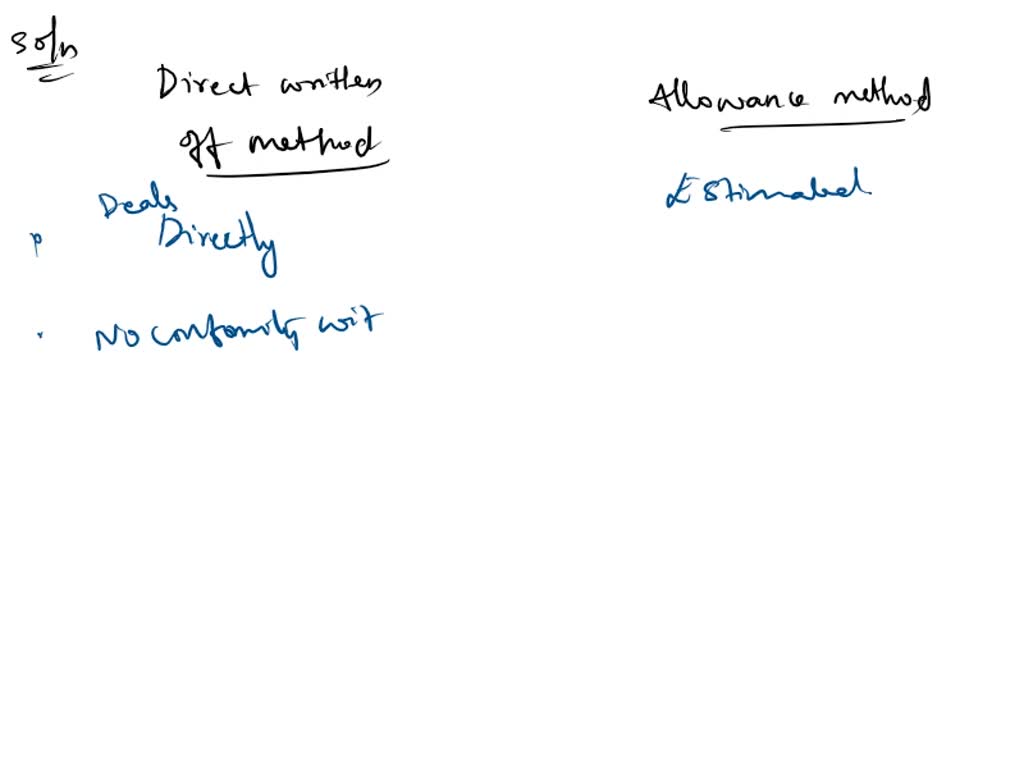 Soln
Direct written
off method
Allowance method
Deals
Directly
Estimated
No conformity wit